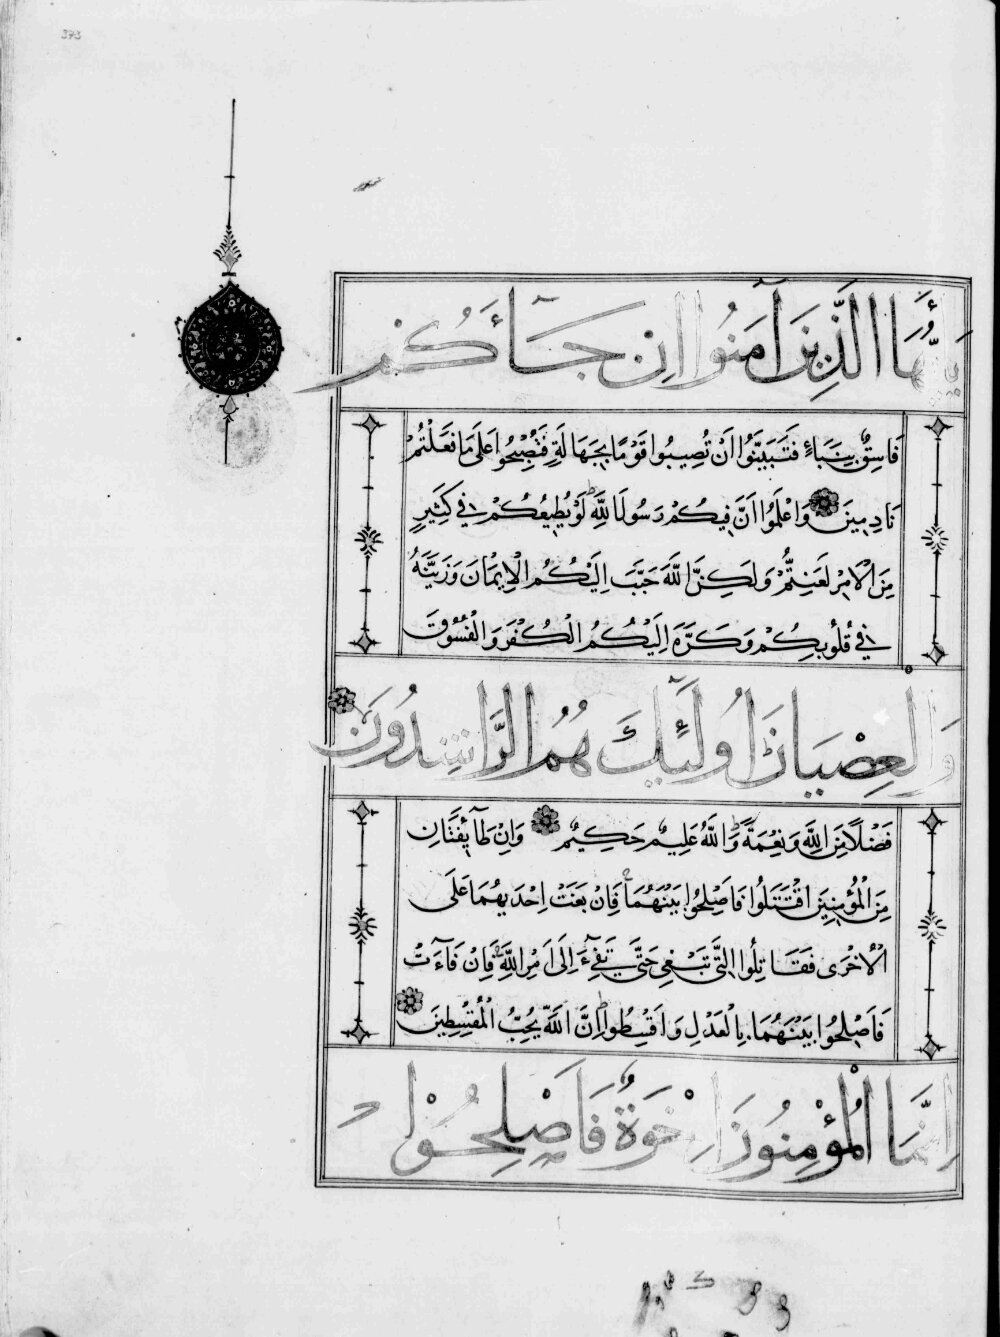 373
يَا أَيُّهَا الَّذِينَ آمَنُوا اِنْ جَاۤءَكُمْ
فَاسِقٌ بِنَبَاءٍ فَتَبَيَّنُوا اَنْ تُصِيبُوا قَوْمًا بِجَهَالَةٍ فَتُصْبِحُوا عَلَى مَا فَعَلْتُمْ
نَادِمِينَ وَاعْلَمُوا اَنَّ فِيكُمْ رَسُولَ اللَّهِ لَوْ يُطِيعُكُمْ فِي كَثِيرٍ
مِنَ الْاَمْرِ لَعَنِتُّمْ وَلَكِنَّ اللَّهَ حَبَّبَ اِلَيْكُمُ الْاِيمَانَ وَزَيَّنَهُ
فِي قُلُوبِكُمْ وَكَرَّهَ اِلَيْكُمُ الْكُفْرَ وَالْفُسُوقَ
وَالْعِصْيَانَ اُولَئِكَ هُمُ الرَّاشِدُونَ
فَضْلًا مِنَ اللَّهِ وَنِعْمَةً وَاللَّهُ عَلِيمٌ حَكِيمٌ وَاِنْ طَآئِفَتَانِ
مِنَ الْمُؤْمِنِينَ اقْتَتَلُوا فَاَصْلِحُوا بَيْنَهُمَا فَاِنْ بَغَتْ اِحْدَيهُمَا عَلَى
الْاُخْرَى فَقَاتِلُوا الَّتِي تَبْغِي حَتَّى تَفِيءَ اِلَى اَمْرِ اللَّهِ فَاِنْ فَاءَتْ
فَاَصْلِحُوا بَيْنَهُمَا بِالْعَدْلِ وَاَقْسِطُوا اِنَّ اللَّهَ يُحِبُّ الْمُقْسِطِينَ
اِنَّمَا الْمُؤْمِنُونَ اِخْوَةٌ فَاَصْلِحُوا